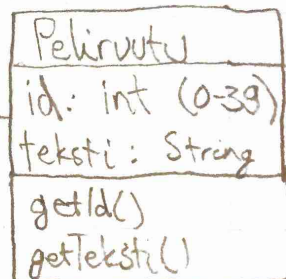 Peliruutu
id: int (0-39)
teksti: String
getId()
getTeksti()